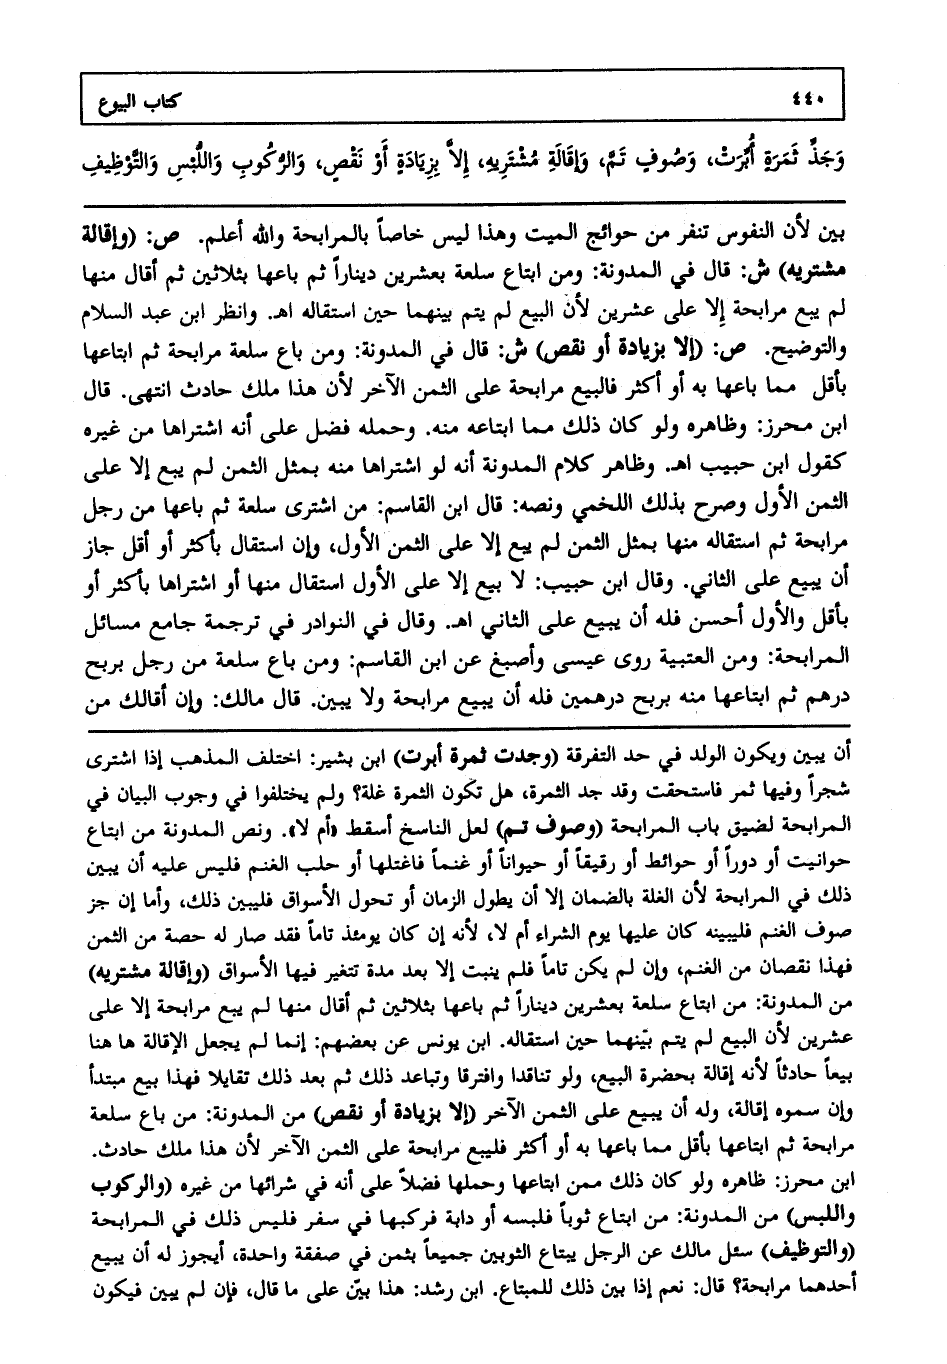 ٤٤٠ كتاب البيوع
وَجَذِّ ثَمَرَةٍ أُبِّرَتْ، وَصُوفٍ تَمَّ، وَإِقَالَةِ مُشْتَرِيهِ، إِلاَّ بِزِيَادَةٍ أَوْ نَقْصٍ، وَالرُّكُوبِ وَاللُّبْسِ وَالتَّوْظِيفِ
بين لأن النفوس تنفر من حوائج الميت وهذا ليس خاصاً بالمرابحة والله أعلم. ص: (وإقالة
مشتريه) ش: قال في المدونة: ومن ابتاع سلعة بعشرين ديناراً ثم باعها بثلاثين ثم أقال منها
لم يبع مرابحة إلا على عشرين لأن البيع لم يتم بينهما حين استقاله اهـ. وانظر ابن عبد السلام
والتوضيح. ص: (إلا بزيادة أو نقص) ش: قال في المدونة: ومن باع سلعة مرابحة ثم ابتاعها
بأقل مما باعها به أو أكثر فالبيع مرابحة على الثمن الآخر لأن هذا ملك حادث انتهى. قال
ابن محرز: وظاهره ولو كان ذلك مما ابتاعه منه. وحمله فضل على أنه اشتراها من غيره
كقول ابن حبيب اهـ. وظاهر كلام المدونة أنه لو اشتراها منه بمثل الثمن لم يبع إلا على
الثمن الأول وصرح بذلك اللخمي ونصه: قال ابن القاسم: من اشترى سلعة ثم باعها من رجل
مرابحة ثم استقاله منها بمثل الثمن لم يبع إلا على الثمن الأول، وإن استقال بأكثر أو أقل جاز
أن يبيع على الثاني. وقال ابن حبيب: لا بيع إلا على الأول استقال منها أو اشتراها بأكثر أو
بأقل والأول أحسن فله أن يبيع على الثاني اهـ. وقال في النوادر في ترجمة جامع مسائل
المرابحة: ومن العتبية روى عيسى وأصبغ عن ابن القاسم: ومن باع سلعة من رجل بربح
درهم ثم ابتاعها منه بربح درهمين فله أن يبيع مرابحة ولا يبين. قال مالك: وإن أقالك من
أن يبين ويكون الولد في حد التفرقة (وجدت ثمرة أبرت) ابن بشير: اختلف المذهب إذا اشترى
شجراً وفيها ثمر فاستحقت وقد جد الثمرة، هل تكون الثمرة غلة؟ ولم يختلفوا في وجوب البيان في
المرابحة لضيق باب المرابحة (وصوف تم) لعل الناسخ أسقط «أم لا». ونص المدونة من ابتاع
حوانيت أو دوراً أو حوائط أو رقيقاً أو حيواناً أو غنماً فاغتلها أو حلب الغنم فليس عليه أن يبين
ذلك في المرابحة لأن الغلة بالضمان إلا أن يطول الزمان أو تحول الأسواق فليبين ذلك، وأما إن جز
صوف الغنم فليبينه كان عليها يوم الشراء أم لا، لأنه إن كان يومئذ تاماً فقد صار له حصة من الثمن
فهذا نقصان من الغنم، وإن لم يكن تاماً فلم ينبت إلا بعد مدة تتغير فيها الأسواق (وإقالة مشتريه)
من المدونة: من ابتاع سلعة بعشرين ديناراً ثم باعها بثلاثين ثم أقال منها لم يبع مرابحة إلا على
عشرين لأن البيع لم يتم بيّنهما حين استقاله. ابن يونس عن بعضهم: إنما لم يجعل الإقالة ها هنا
بيعاً حادثاً لأنه إقالة بحضرة البيع، ولو تناقدا وافترقا وتباعد ذلك ثم بعد ذلك تقايلا فهذا بيع مبتدأ
وإن سموه إقالة، وله أن يبيع على الثمن الآخر (إلا بزيادة أو نقص) من المدونة: من باع سلعة
مرابحة ثم ابتاعها بأقل مما باعها به أو أكثر فليبع مرابحة على الثمن الآخر لأن هذا ملك حادث.
ابن محرز: ظاهره ولو كان ذلك ممن ابتاعها وحملها فضلاً على أنه في شرائها من غيره (والركوب
واللبس) من المدونة: من ابتاع ثوباً فلبسه أو دابة فركبها في سفر فليس ذلك في المرابحة
(والتوظيف) سئل مالك عن الرجل يبتاع الثوبين جميعاً بثمن في صفقة واحدة، أيجوز له أن يبيع
أحدهما مرابحة؟ قال: نعم إذا بين ذلك للمبتاع. ابن رشد: هذا بيّن على ما قال، فإن لم يبين فيكون